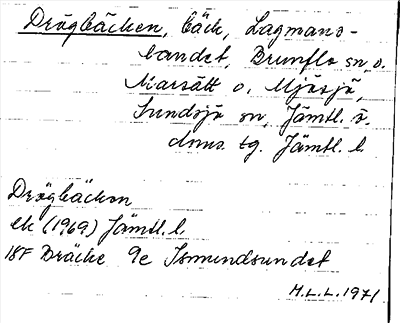 Drögbäcken, bäck, Lagmans-
landet, Brunflo sn, o.
Marsätt o. Mjösjö,
Sundsjö sn, Jämtl. ö.
doms. tg. Jämtl. l.
Drögbäcken
ek (1969) Jämtl. l.
18F Bräcke 9e Ismundsundet
H.L.L. 1971